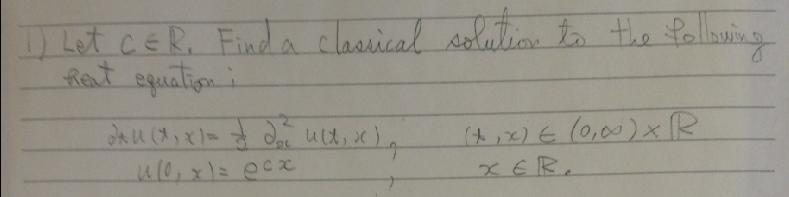 1) Let C ∈ ℝ. Find a classical solution to the following
heat equation;
∂ₜu(t,x) = ½ ∂ₓ² u(t,x), (t,x) ∈ (0,∞) × ℝ
u(0,x) = e^{cx}, x ∈ ℝ.